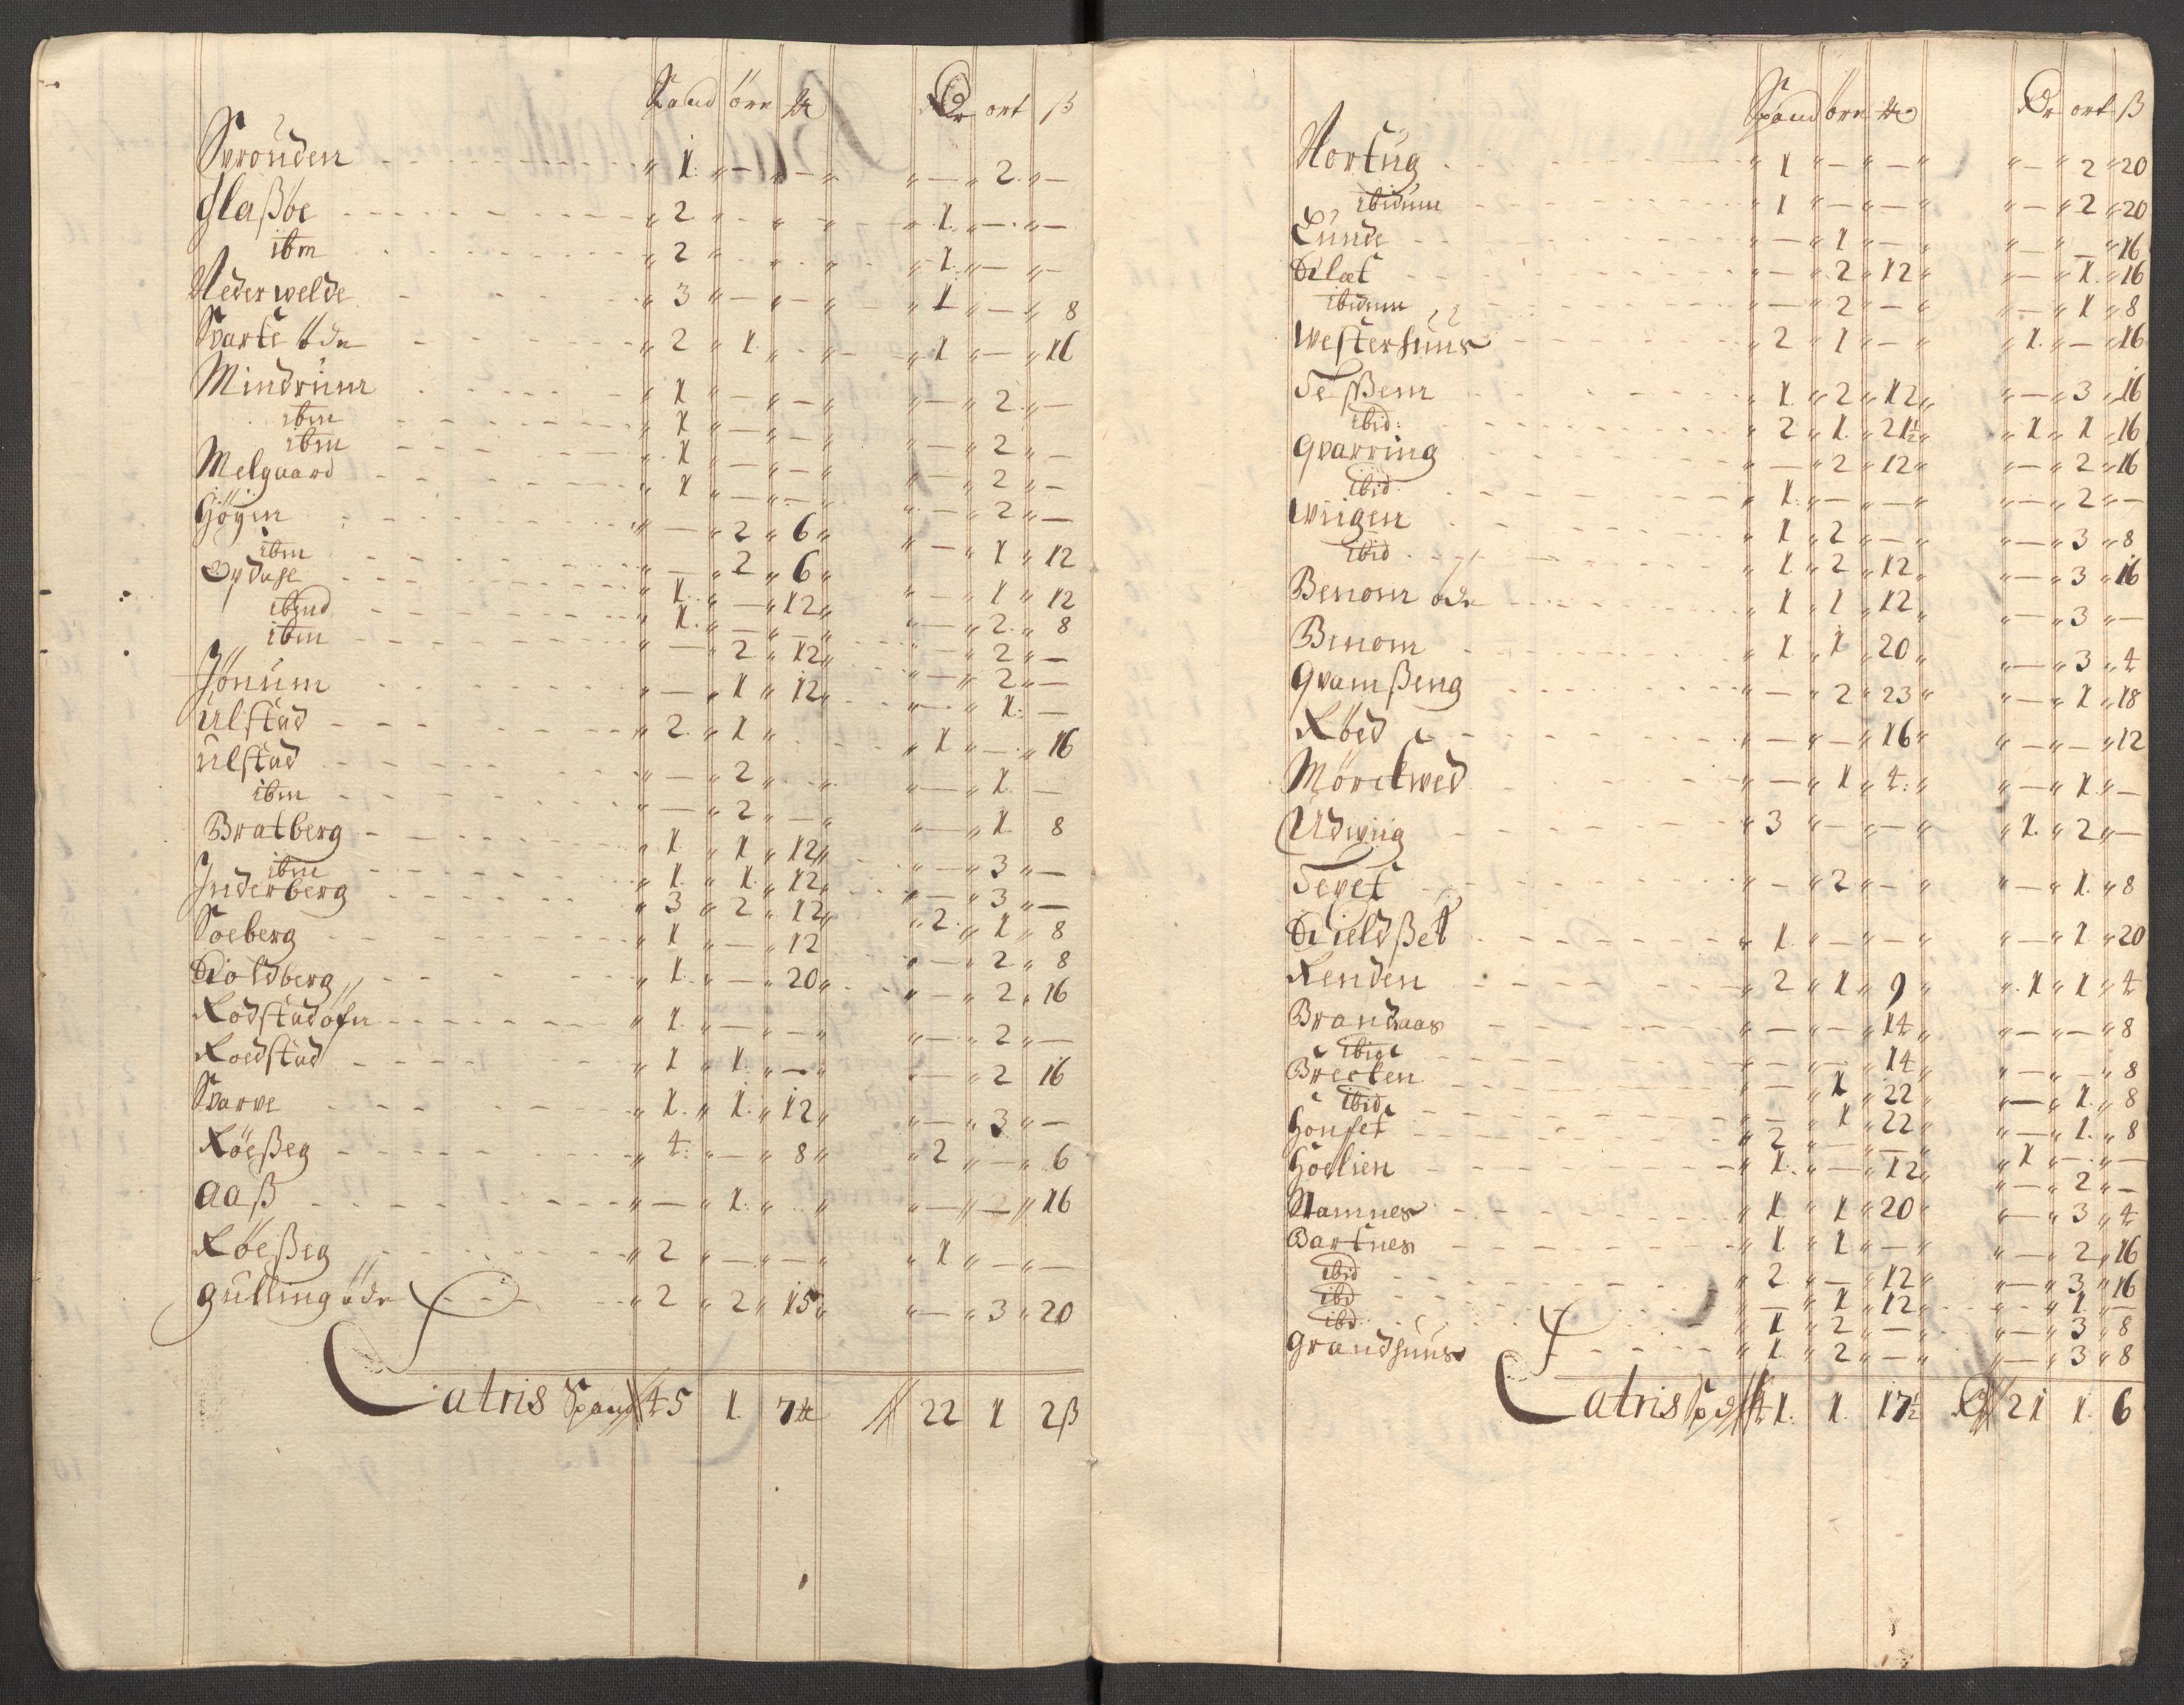 Spand örr ₰ Dr ort ß
Svrouden " 1. " — " — " " — " 2. " —
Flaßøe " 2 " " " 1. " — " —
ibm " 2 " " " 1. " — " —
Nederwelde " 3 " — " — " 1 " — " 8
Svarte öde " 2 " 1. " — " 1 " — " 16
Mindrum " 1 " — " — " — " 2. " —
ibm " 1 " — " — " — " 2 " —
ibm " 1 " — " — " — " 2 " —
Melgaard " 1 " — " — " — " 2 " —
Högen " — " 2 " 6 " — " 1 " 12
ibm " — " 2 " 6 " — " 1 " 12
Opdahl " 1. " — " 12 " — " 2. " 8
ibmd " 1. " — " — " — " 2 " —
ibm " — " 2 " 12 " — " 2 " —
Jönum " — " 1 " 12 " — " 1. " —
Ulstad " 2. " 1 " " 1 " — " 16
Ulstad " — " 2 " " — " 1. —
ibm " — " 2 " — " — " 1. 8
Bratberg " 1. " 1 " 12 " — " 3 " —
ibm " 1. " 1. " 12 " — " 3 " —
Inderberg " 3 " 2 " 12 " 2. " 1 " 8
Soeberg " 1 " — " 12 " — " 2 " 8
Kioldberg " 1. " — " 20 " — " 2 " 16
Rodstadöfn " 1. " — " — " — " 2 " —
Roedstad " 1 " 1. " — " — " 2 16
Svarve " 1. " 1. " 12 " — " 3 " —
Röeßeg " 4. " — " 8 " 2 " — " 6
Aaß " — " 1. " " — " — " 16
Röeßeg " 2 " — " — " 1 " — " —
Gulling öde " 2 " 2 " 15 " — " 3 " 20
Latris Spand 45 1. 7₰ 22 1 2ß
Spand örr ₰ Dr ort ß
Nortug " 1 " — " — " — " 2 " 20
ibidum " 1 " — " — " — " 2 " 20
Lunde " — " 1 " — " — " — " 16
Klæt " — " 2 " 12 " — " 1. " 16
ibidum " — " 2 " — " — " 1 " 8
Westerhuus " 2 " 1 " — " 1. " — " 16
Teßem " 1. " 2 " 12 " — " 3 " 16
ibid: " 2 " 1. " 21½ " 1 " 1 " 16
Qvarring " — " 2 " 12 " — " 2 " 16
ibid " 1. " — " — " — " 2 " —
Wiigen " 1 " 2 " — " — " 3 " 8
ibid " 1 " 2 " 12 " — " 3 " 16
Benom öde " 1 " 1 " 12 " — " 3 " —
Benom " 1. " 1 " 20 " — " 3 " 4
Qvamßeng " — " 2 " 23 " — " 1 " 18
Röed " — " — " 16 " — " — " 12
Mörckwed " — " 1 " 4: " — " 1. " —
Udwiig " 3 " — " — " 1. " 2 " —
Tevet " — " 2 " — " — " 1. " 8
Kieldßet " 1. " — " — " — " 1 " 20
Renden " 2 " 1 " 9 " 1 " 1 " 4
Brandaas " — " — " 14 " — " — " 8
ibid " — " — " 14 " — " — " 8
Brecken " — " 1 " 22 " — " 1. " 8
ibid " — " 1 " 22 " — " 1. " 8
Honset " 2 " — " — " 1 " — " —
Höelien " 1. " — " 12 " — " 2 " —
Mamnes " 1. " 1 " 20 " — " 3 " 4
Bartnes " 1. " 1 " — " — " 2 " 16
ibid " 2. " — " 12 " — " 3 " 16
ibd " — " 1 " 12 " — " 1 " —
ibd " 1 " 2 " — " — " 3 " 8
Grandhuus " 1. " 2 " — " — " 3 " 8
Latris Spd 41. 1. 17½ Rdr 21 1. 6